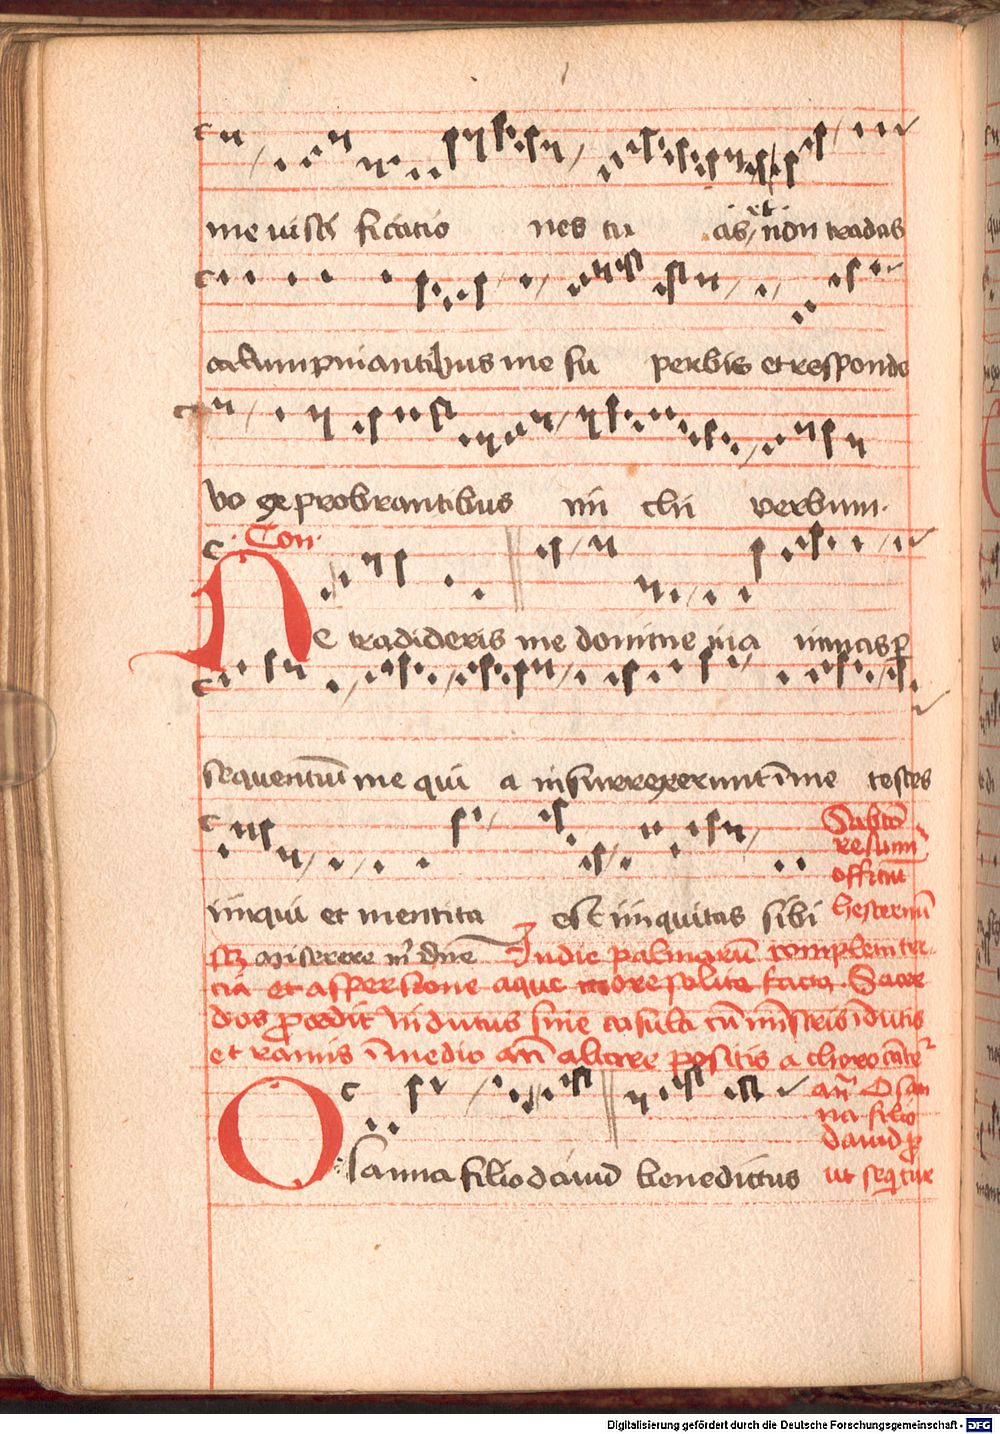 me iusti ficatio nes tu as et non tradas
calumpniantibus me su perbis et responde
bo exprobrantibus mi chi verbum.
Con.
Ne tradideris me domine in a nimas ꝑ
sequentiū me qui a insurrexerunt ī me testes
iniqui et mentita est iniquitas sibi
Sabbō
resumīt
officiū
hesternū
Miserere m̄ dn̄e In die palmarū completa ter
cia et aspersione aque more solito facta. Sacer
dos ꝓcedit indutus sine casula cū mīstris īdutis
et ramis ī medio an̄ altare positis a choro cāte
Osanna filio dauid benedictus
an̄ Osan
na filio
dauid ꝓ
ut seqͥtur
Digitalisierung gefördert durch die Deutsche Forschungsgemeinschaft - DFG